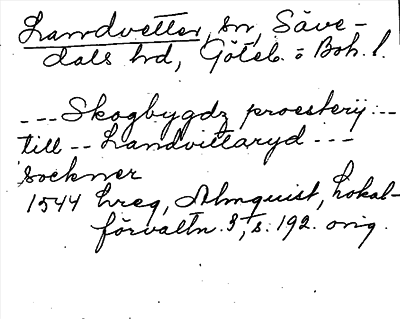 Landvetter, sn, Säve-
dals hd, Göteb. o Boh. l.
--- Skogbygdz proesterij --
till -- Landvittaryd ---
sockner
1544 hreg, Almquist, Lokal-
förvaltn. 3, s. 192. orig.